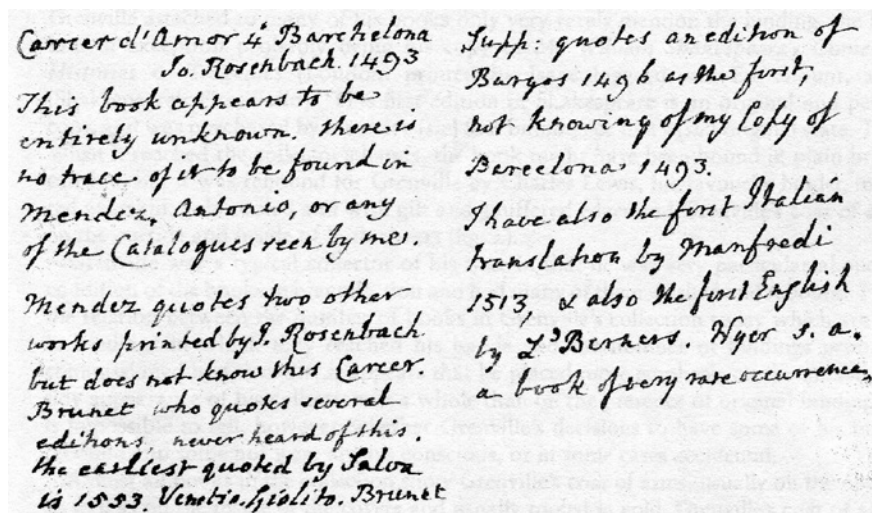 Carcer d'Amor 4 Barchelona
Jo. Rosenbach. 1493
This book appears to be
entirely unknown. there is
no trace of it to be found in
Mendez, Antonio, or any
of the Catalogues seen by me.
Mendez quotes two other
works printed by J. Rosenbach.
but does not know this Carcer.
Brunet who quotes several
editions never heard of this.
the earliest quoted by Salva
is 1553. Venetia. Giolito. Brunet
Supp. quotes an edition of
Burgos 1496 as the first,
not knowing of my Copy of
Barcelona. 1493.
I have also the first Italian
translation by Manfredi
1513 & also the first English
by L. Berners. Wyer s. a.
a book of very rare occurrence,